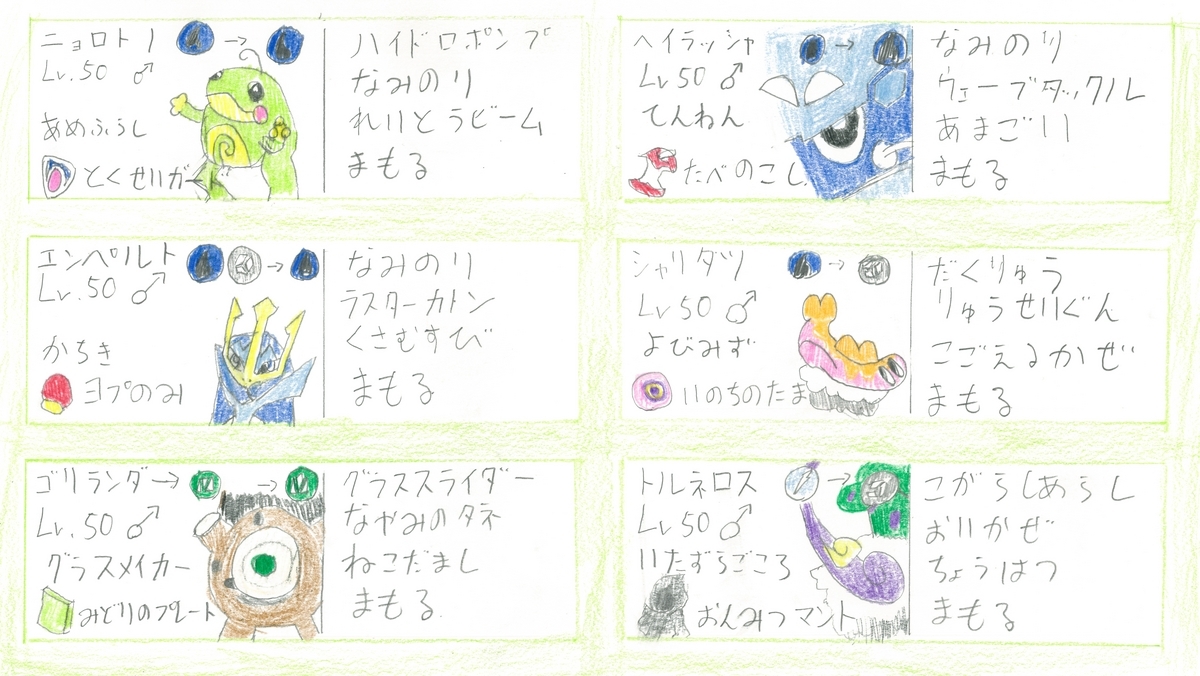 ニョロトノ
Lv.50 ♂
あめふらし
とくせいガード
ハイドロポンプ
なみのり
れいとうビーム
まもる
ヘイラッシャ
Lv50 ♂
てんねん
たべのこし
なみのり
ウェーブタックル
あまごい
まもる
エンペルト
Lv.50 ♂
かちき
ヨプのみ
なみのり
ラスターカノン
くさむすび
まもる
シャリタツ
Lv50 ♂
よびみず
いのちのたま
だくりゅう
りゅうせいぐん
こごえるかぜ
まもる
ゴリランダー
Lv.50 ♂
グラスメイカー
みどりのプレート
グラススライダー
なやみのタネ
ねこだまし
まもる
トルネロス
Lv50 ♂
いたずらごころ
おんみつマント
こがらしあらし
おいかぜ
ちょうはつ
まもる